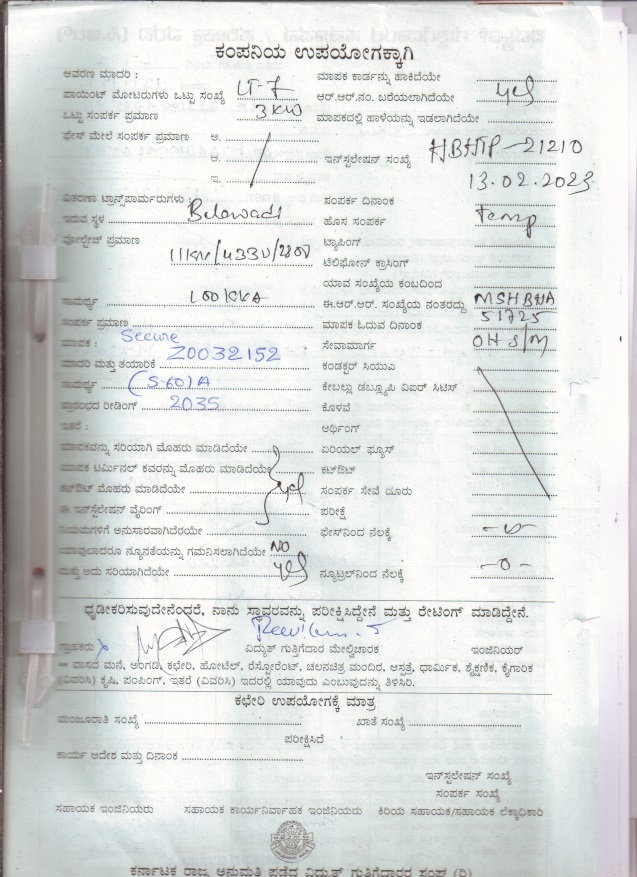 ಕಂಪನಿಯ ಉಪಯೋಗಕ್ಕಾಗಿ
ಆವರಣ ಮಾದರಿ : LT-7 ಮಾಪಕ ಕಾರ್ಡನ್ನು ಹಾಕಿದೆಯೇ
ಪಾಯಿಂಟ್ ಮೋಟರುಗಳು ಒಟ್ಟು ಸಂಖ್ಯೆ ಆರ್.ಆರ್.ನಂ. ಬರೆಯಲಾಗಿದೆಯೇ yes
ಒಟ್ಟು ಸಂಪರ್ಕ ಪ್ರಮಾಣ 3KW ಮಾಪಕದಲ್ಲಿ ಹಾಳೆಯನ್ನು ಇಡಲಾಗಿದೆಯೇ
ಫೇಸ್ ಮೇಲೆ ಸಂಪರ್ಕ ಪ್ರಮಾಣ ಅ.
ಆ. ಇನ್‌ಸ್ಟಲೇಷನ್ ಸಂಖ್ಯೆ HBHTP-21210
ಇ. 13.02.2023
ವಿತರಣಾ ಟ್ರಾನ್ಸ್‌ಫಾರ್ಮರುಗಳು : ಸಂಪರ್ಕ ದಿನಾಂಕ
ಇರುವ ಸ್ಥಳ Belawadi ಹೊಸ ಸಂಪರ್ಕ Temp
ವೋಲ್ಟೇಜ್ ಪ್ರಮಾಣ 11KV/433V/230V ಟ್ಯಾಪಿಂಗ್
ಟೆಲಿಫೋನ್ ಕ್ರಾಸಿಂಗ್
ಯಾವ ಸಂಖ್ಯೆಯ ಕಂಬದಿಂದ
ಸಾಮರ್ಥ್ಯ 100KVA ಈ.ಆರ್.ಆರ್. ಸಂಖ್ಯೆಯ ನಂತರದ್ದು MSHBHA
ಸಂಪರ್ಕ ಪ್ರಮಾಣ ಮಾಪಕ ಓದುವ ದಿನಾಂಕ 51725
ಮಾಪಕ : Secure ಸೇವಾಮಾರ್ಗ OH S/M
ಮಾದರಿ ಮತ್ತು ತಯಾರಿಕೆ Z0032152 ಕಂಡಕ್ಟರ್ ಸಿಯುಎ
ಸಾಮರ್ಥ್ಯ (5-60)A ಕೇಬಲ್ಲು ಡಬ್ಲ್ಯೂಪಿ ವಿಐರ್ ಸಿಟಿಸ್
ಪ್ರಾರಂಭದ ರೀಡಿಂಗ್ 2035 ಕೊಳವೆ
ಇತರೆ : ಅರ್ಥಿಂಗ್
ಮಾಪಕವನ್ನು ಸರಿಯಾಗಿ ಮೊಹರು ಮಾಡಿದೆಯೇ ಏರಿಯಲ್ ಫ್ಯೂಸ್
ಮಾಪಕ ಟರ್ಮಿನಲ್ ಕವರನ್ನು ಮೊಹರು ಮಾಡಿದೆಯೇ ಕಟ್‌ಔಟ್
ಕಟ್‌ಔಟ್ ಮೊಹರು ಮಾಡಿದೆಯೇ yes ಸಂಪರ್ಕ ಸೇವೆ ದೂರು
ಈ ಇನ್‌ಸ್ಟಲೇಷನ್ ವೈರಿಂಗ್ ಪರೀಕ್ಷೆ
ನಿಯಮಗಳಿಗೆ ಅನುಸಾರವಾಗಿದೆಯೇ ಫೇಸ್‌ನಿಂದ ನೆಲಕ್ಕೆ
ಯಾವುದಾದರೂ ನ್ಯೂನತೆಯನ್ನು ಗಮನಿಸಲಾಗಿದೆಯೇ NO
ಮತ್ತು ಅದು ಸರಿಯಾಗಿದೆಯೇ yes ನ್ಯೂಟ್ರಲ್‌ನಿಂದ ನೆಲಕ್ಕೆ -0-
ಧೃಡೀಕರಿಸುವುದೇನೆಂದರೆ, ನಾನು ಸ್ಥಾವರವನ್ನು ಪರೀಕ್ಷಿಸಿದ್ದೇನೆ ಮತ್ತು ರೇಟಿಂಗ್ ಮಾಡಿದ್ದೇನೆ.
ಗ್ರಾಹಕರು ವಿದ್ಯುತ್ ಗುತ್ತಿಗೆದಾರ ಮೇಲ್ವಿಚಾರಕ ಇಂಜಿನಿಯರ್
** ವಾಸದ ಮನೆ, ಅಂಗಡಿ, ಕಛೇರಿ, ಹೋಟೆಲ್, ರೆಸ್ಟೋರೆಂಟ್, ಚಲನಚಿತ್ರ ಮಂದಿರ, ಆಸ್ಪತ್ರೆ, ಧಾರ್ಮಿಕ, ಶೈಕ್ಷಣಿಕ, ಕೈಗಾರಿಕ
(ವಿವರಿಸಿ) ಕೃಷಿ, ಪಂಪಿಂಗ್, ಇತರೆ (ವಿವರಿಸಿ) ಇದರಲ್ಲಿ ಯಾವುದು ಎಂಬುವುದನ್ನು ತಿಳಿಸಿರಿ.
ಕಛೇರಿ ಉಪಯೋಗಕ್ಕೆ ಮಾತ್ರ
ಮಂಜೂರಾತಿ ಸಂಖ್ಯೆ ಖಾತೆ ಸಂಖ್ಯೆ
ಪರೀಕ್ಷಿಸಿದೆ
ಕಾರ್ಯ ಆದೇಶ ಮತ್ತು ದಿನಾಂಕ
ಇನ್‌ಸ್ಟಲೇಷನ್ ಸಂಖ್ಯೆ
ಸಂಪರ್ಕ ಸಂಖ್ಯೆ
ಸಹಾಯಕ ಇಂಜಿನಿಯರು ಸಹಾಯಕ ಕಾರ್ಯನಿರ್ವಾಹಕ ಇಂಜಿನಿಯರು ಕಿರಿಯ ಸಹಾಯಕ/ಸಹಾಯಕ ಲೆಕ್ಕಾಧಿಕಾರಿ
ಕರ್ನಾಟಕ ರಾಜ್ಯ ಅನುಮತಿ ಪಡೆದ ವಿದ್ಯುತ್ ಗುತ್ತಿಗೆದಾರರ ಸಂಘ (ರಿ)